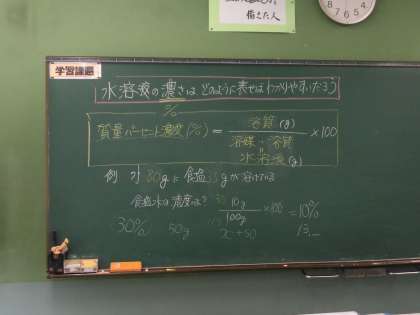 描きた人
8 7 6 5 4
学習課題
水溶液の濃さはどのように表せばわかりやすいだろう
%
質量パーセント濃度(%) = 溶質(g) / 溶媒+溶質 × 100
水溶液(g)
例 水 80gに食塩 gが溶けている
食塩水の濃度は? 10g / 100g ×100 = 10%
30% 50g x+50